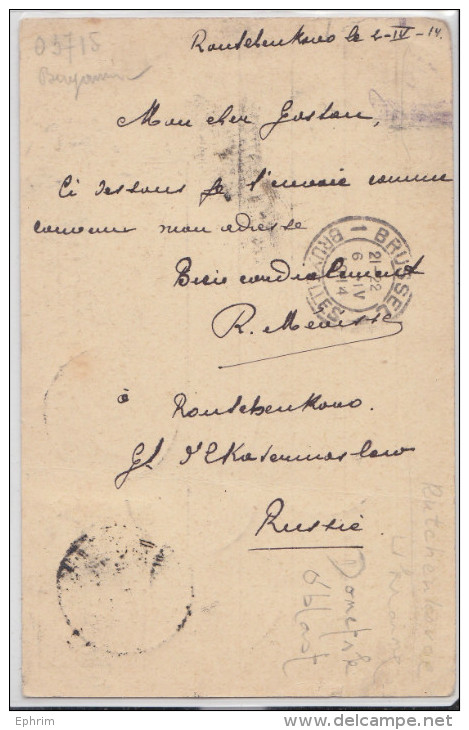 03715
Benjamin
Routchenkovo le 2-IV-14.
Mon cher Gaston,
Ci dessous je t'envoie comme
convenu mon adresse
Bien cordialement
R. Meurisse
BRUSSEL
1
BRUXELLES
21-22
6 IV
14
à Routchenkovo.
Gt d'Ekaterinoslaw
Russie
Donetsk
Oblast
Rutchenkovo
Ukraine
Ephrim
www.delcampe.net